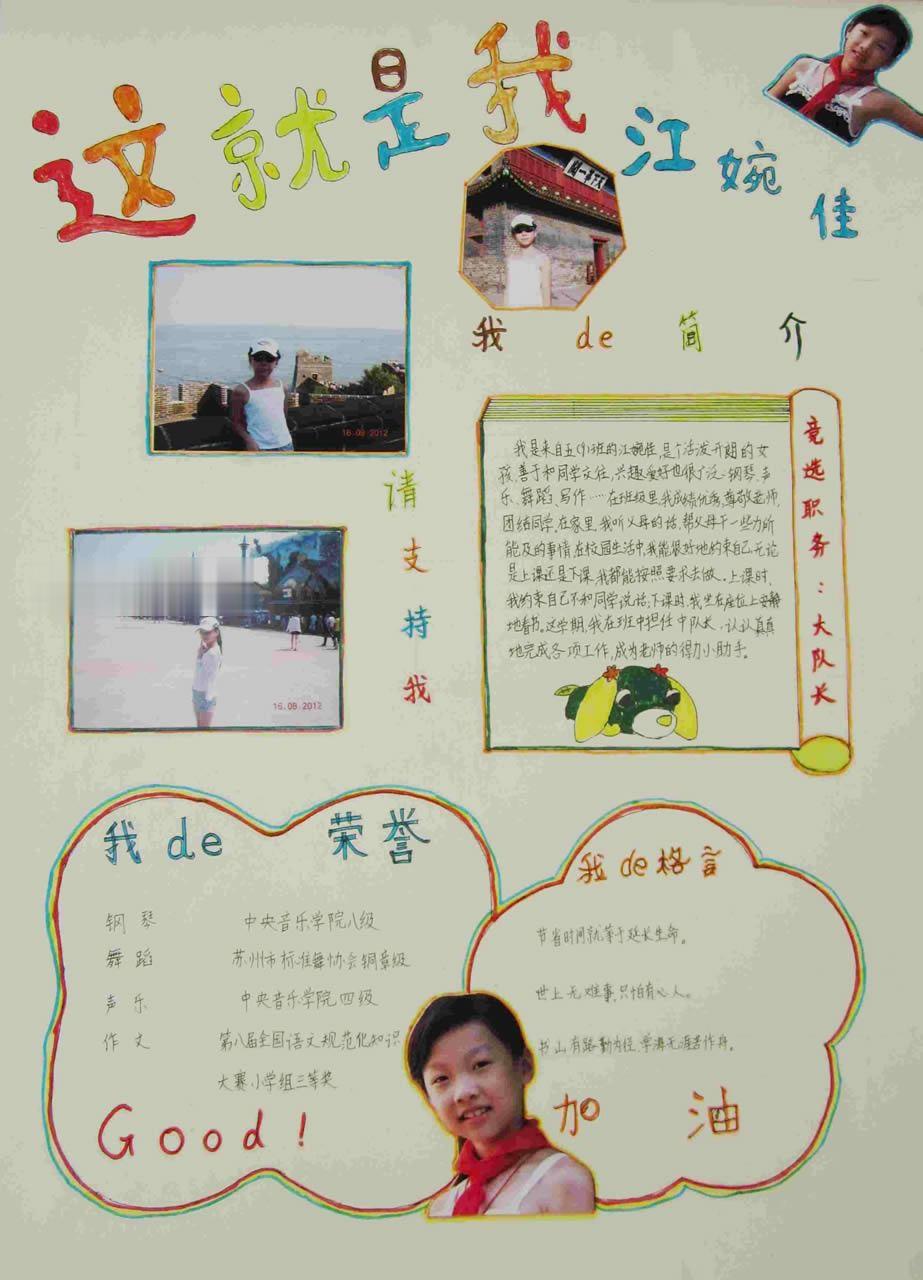 这就是我
江婉佳
天下第一关
我de简介
16.08.2012
请支持我
16.08.2012
竞选职务：大队长
我是来自五(9)班的江婉佳,是个活泼开朗的女
孩,善于和同学交往,兴趣爱好也很广泛:钢琴、声
乐、舞蹈、写作……在班级里,我成绩优秀,尊敬老师,
团结同学。在家里,我听父母的话,帮父母干一些力所
能及的事情。在校园生活中,我能很好地约束自己,无论
是上课还是下课,我都能按照要求去做。上课时,
我约束自己不和同学说话;下课时,我坐在座位上安静
地看书。这学期,我在班中担任中队长,认认真真
地完成各项工作,成为老师的得力小助手。
我de荣誉
钢琴 中央音乐学院八级
舞蹈 苏州市标准舞协会铜章级
声乐 中央音乐学院四级
作文 第八届全国语文规范化知识
大赛小学组三等奖
Good!
我de格言
节省时间就等于延长生命。
世上无难事,只怕有心人。
书山有路勤为径,学海无涯苦作舟。
加油